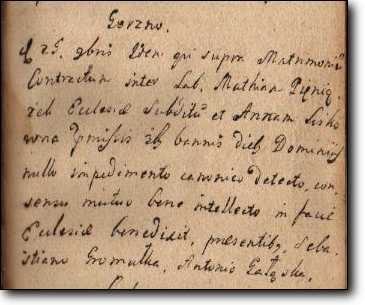 Gorzno.
25. 9bris Idem qui supra Matrimoniũ
Contractum inter Lab. Mathiam Pieniq
zek Eclesiæ Subditũ et Annam Lisko
wna pmissis bannis dieb Dominicis
nullo impedimento canonico detecto, con
sensu mutuo bene intellecto in facie
Eclesiæ benedixit, præsentibq Seba
stiano Gromulka, Antonio